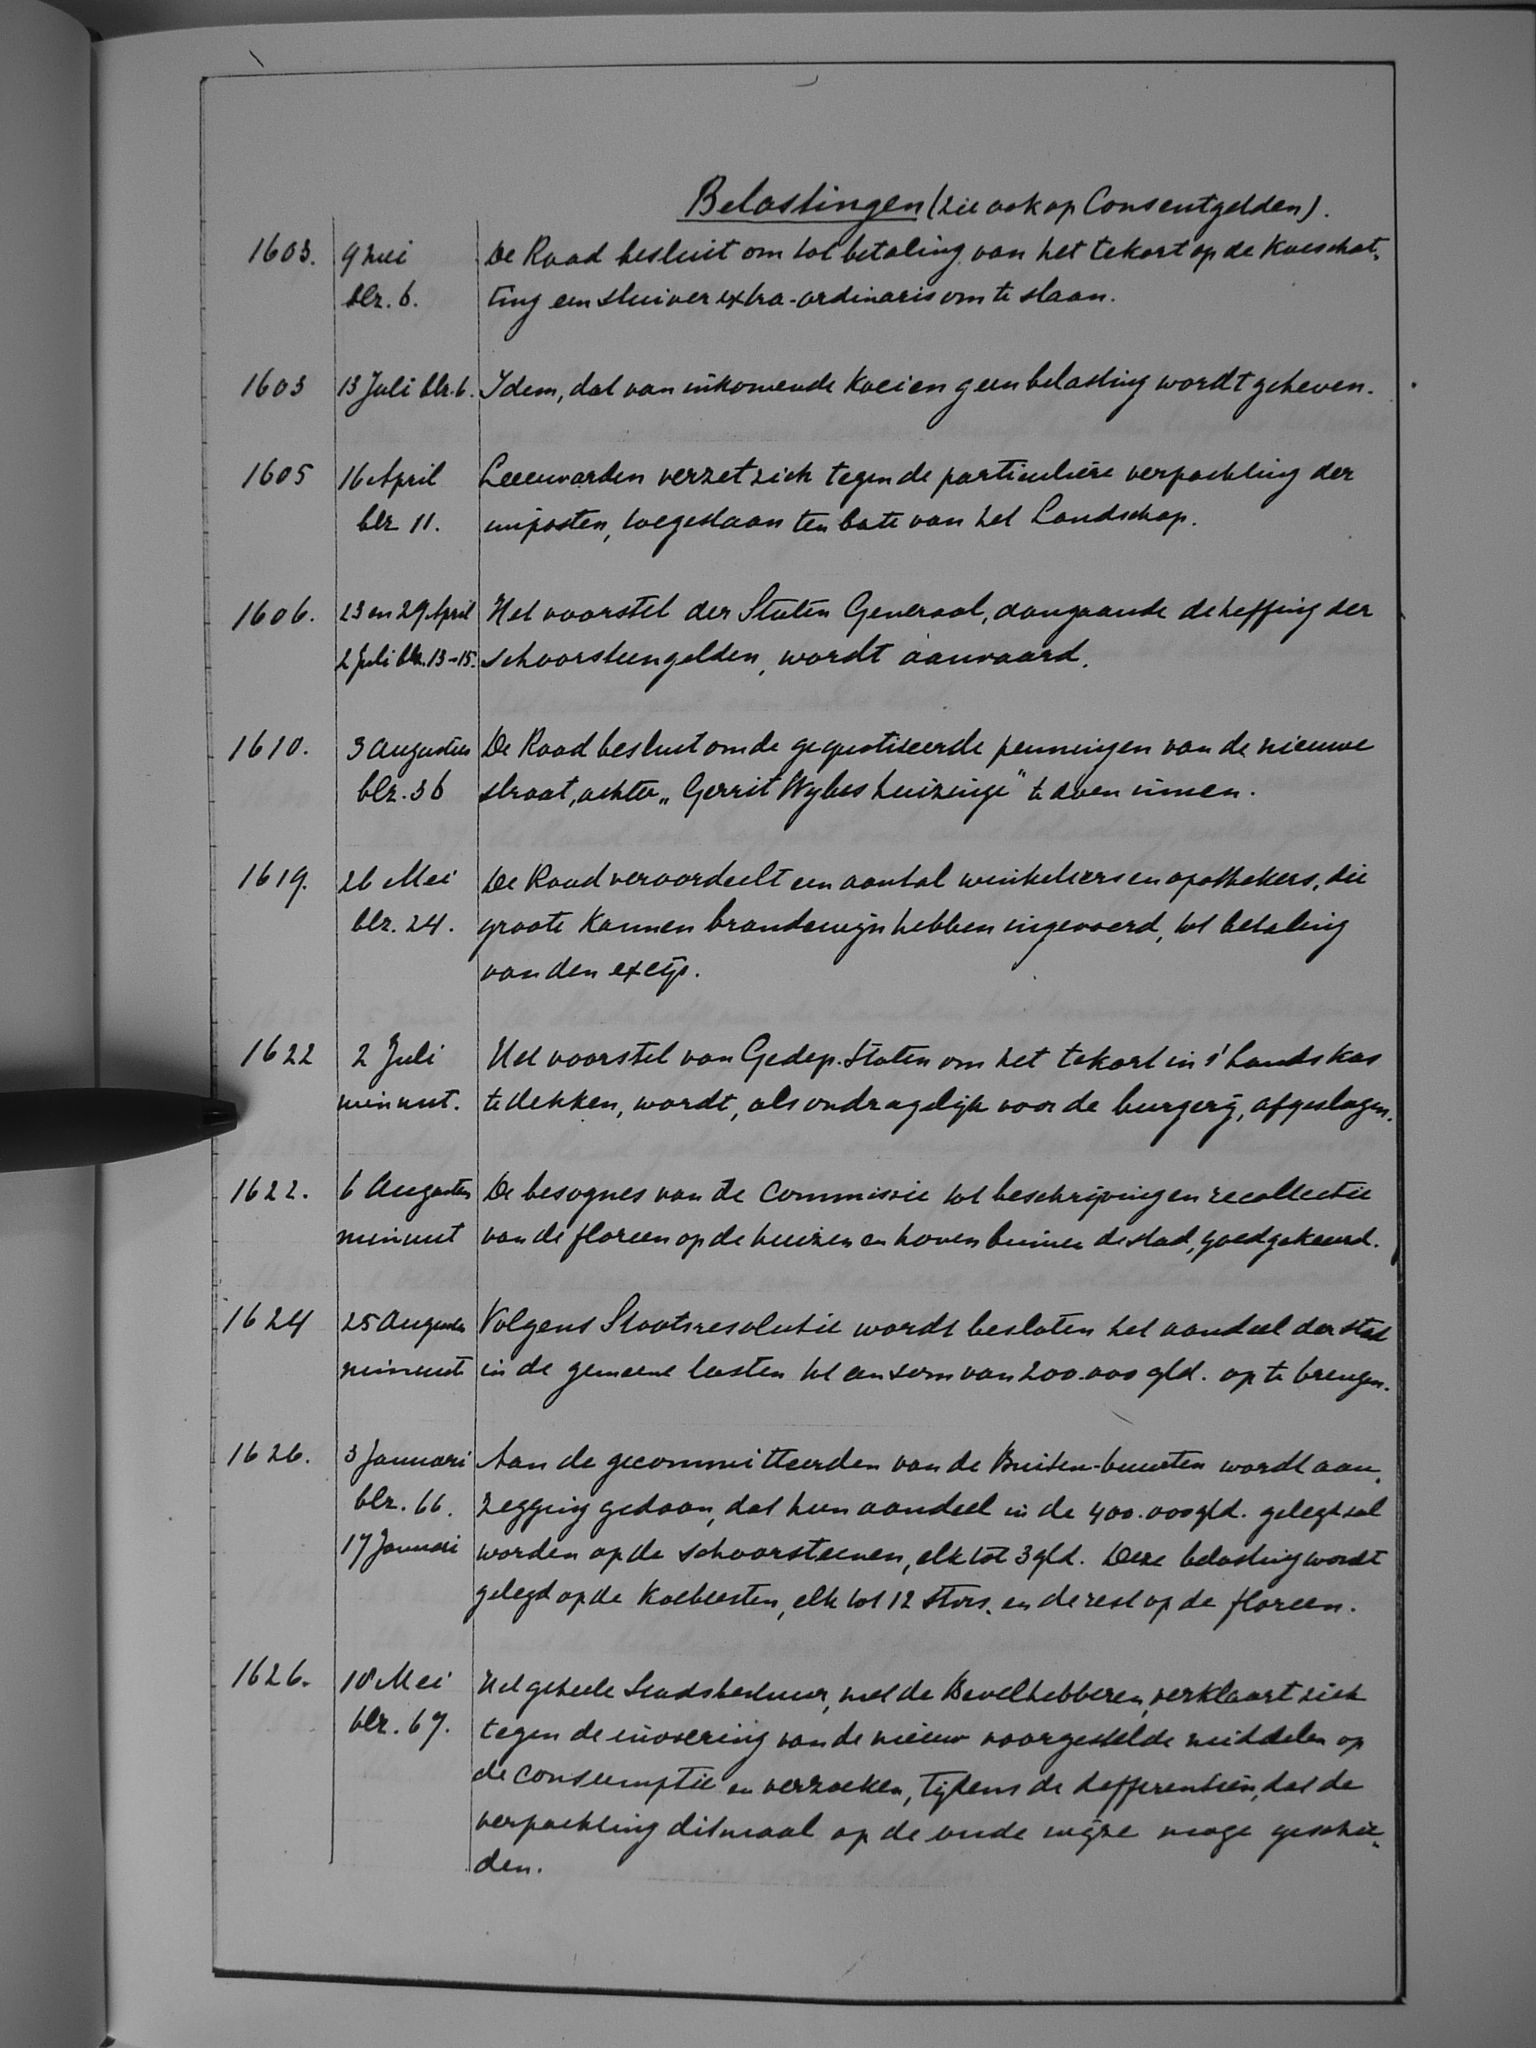 Belastingen (zie ook op Consentgelden).
1603. 9 Mei De Raad besluit om tot betaling van het tekort op de Koeschat-
blz. 6. ting een stuiver extra-ordinaris om te slaan.
1603 13 Juli blz. 6. Idem, dat van inkomende koeien geen belasting wordt geheven.
1605 16 April Leeuwarden verzet zich tegen de particuliere verpachting der
blz 11. imposten, toegestaan ten bate van het Landschap.
1606. 23 en 29 April Het voorstel der Staten Generaal, aangaande de heffing der
2 Juli blz. 13-15. schoorsteengelden, wordt aanvaard.
1610. 3 Augustus De Raad besluit om de gequotiseerde penningen van de nieuwe
blz. 36 straat, achter „Gerrit Wybes huizinge" te doen innen.
1619. 26 Mei De Raad veroordeelt een aantal winkeliers en apothekers, die
blz. 24. groote kannen brandewijn hebben ingevoerd, tot betaling
van den excijs.
1622 2 Juli Het voorstel van Gedep. Staten om het tekort in s' Lands kas
minuut. te dekken, wordt, als ondragelijk voor de burgerij, afgeslagen.
1622. 6 Augustus De besognes van de Commissie tot beschrijving en recollectie
minuut van de floreen op de huizen en hoven binnen de stad, goedgekeurd.
1624 25 Augustus Volgens Staatsresolutie wordt besloten het aandeel der stad
minuut in de gemeene lasten tot een som van 200.000 gld. op te brengen.
1626. 3 Januari Aan de gecommitteerden van de Buiten-buurten wordt aan-
blz. 66. zegging gedaan, dat hun aandeel in de 400.000 gld. gelegd zal
17 Januari worden op de schoorsteenen, elk tot 3 gld. Deze belasting wordt
gelegd op de Koebeesten, elk tot 12 stvrs. en de rest op de floreen.
1626. 18 Mei Het geheele Stadsbestuur, met de Bevelhebberen, verklaart zich
blz. 67. tegen de invoering van de nieuw voorgestelde middelen op
de consumptie en verzoeken, tijdens de differentiën, dat de
verpachting ditmaal op de oude wijze moge geschie-
den.